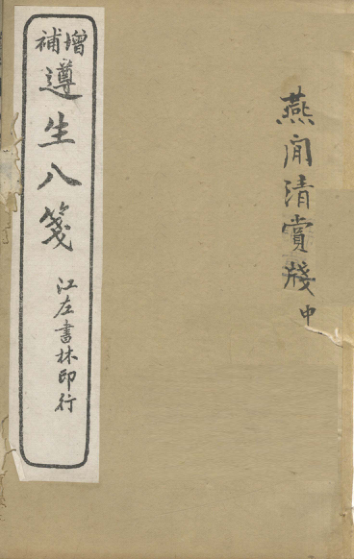 燕閒清賞牋中
增補
遵生八箋
江左書林印行